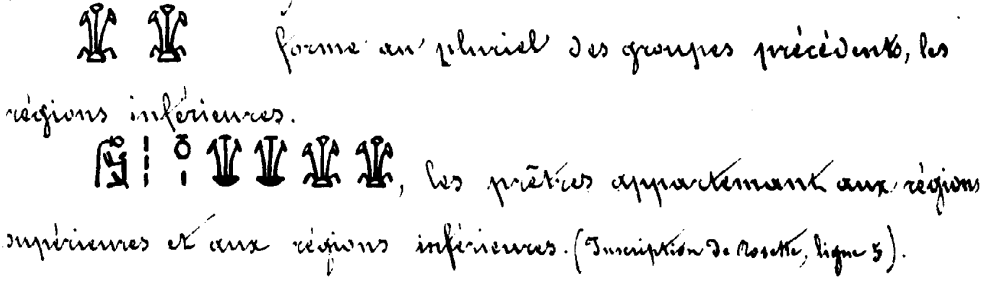 forme au pluriel des groupes précédents, les
régions inférieures.
, les prêtres appartenant aux régions
supérieures et aux régions inférieures. (Inscription de Rosette, ligne 5).